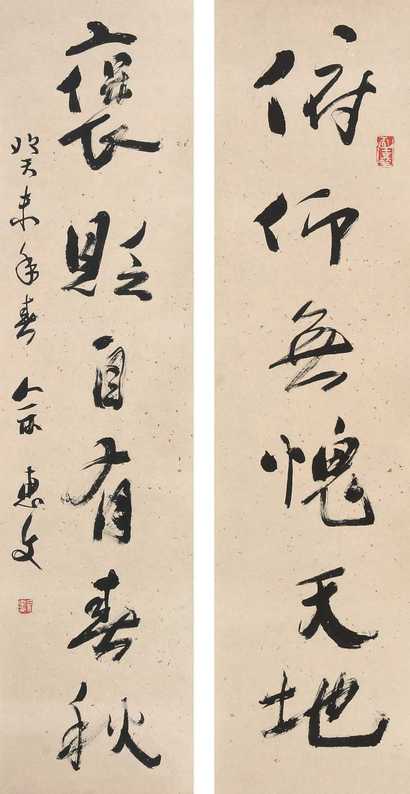 俯仰無愧天地
褒貶自有春秋
癸未年春 俞惠文